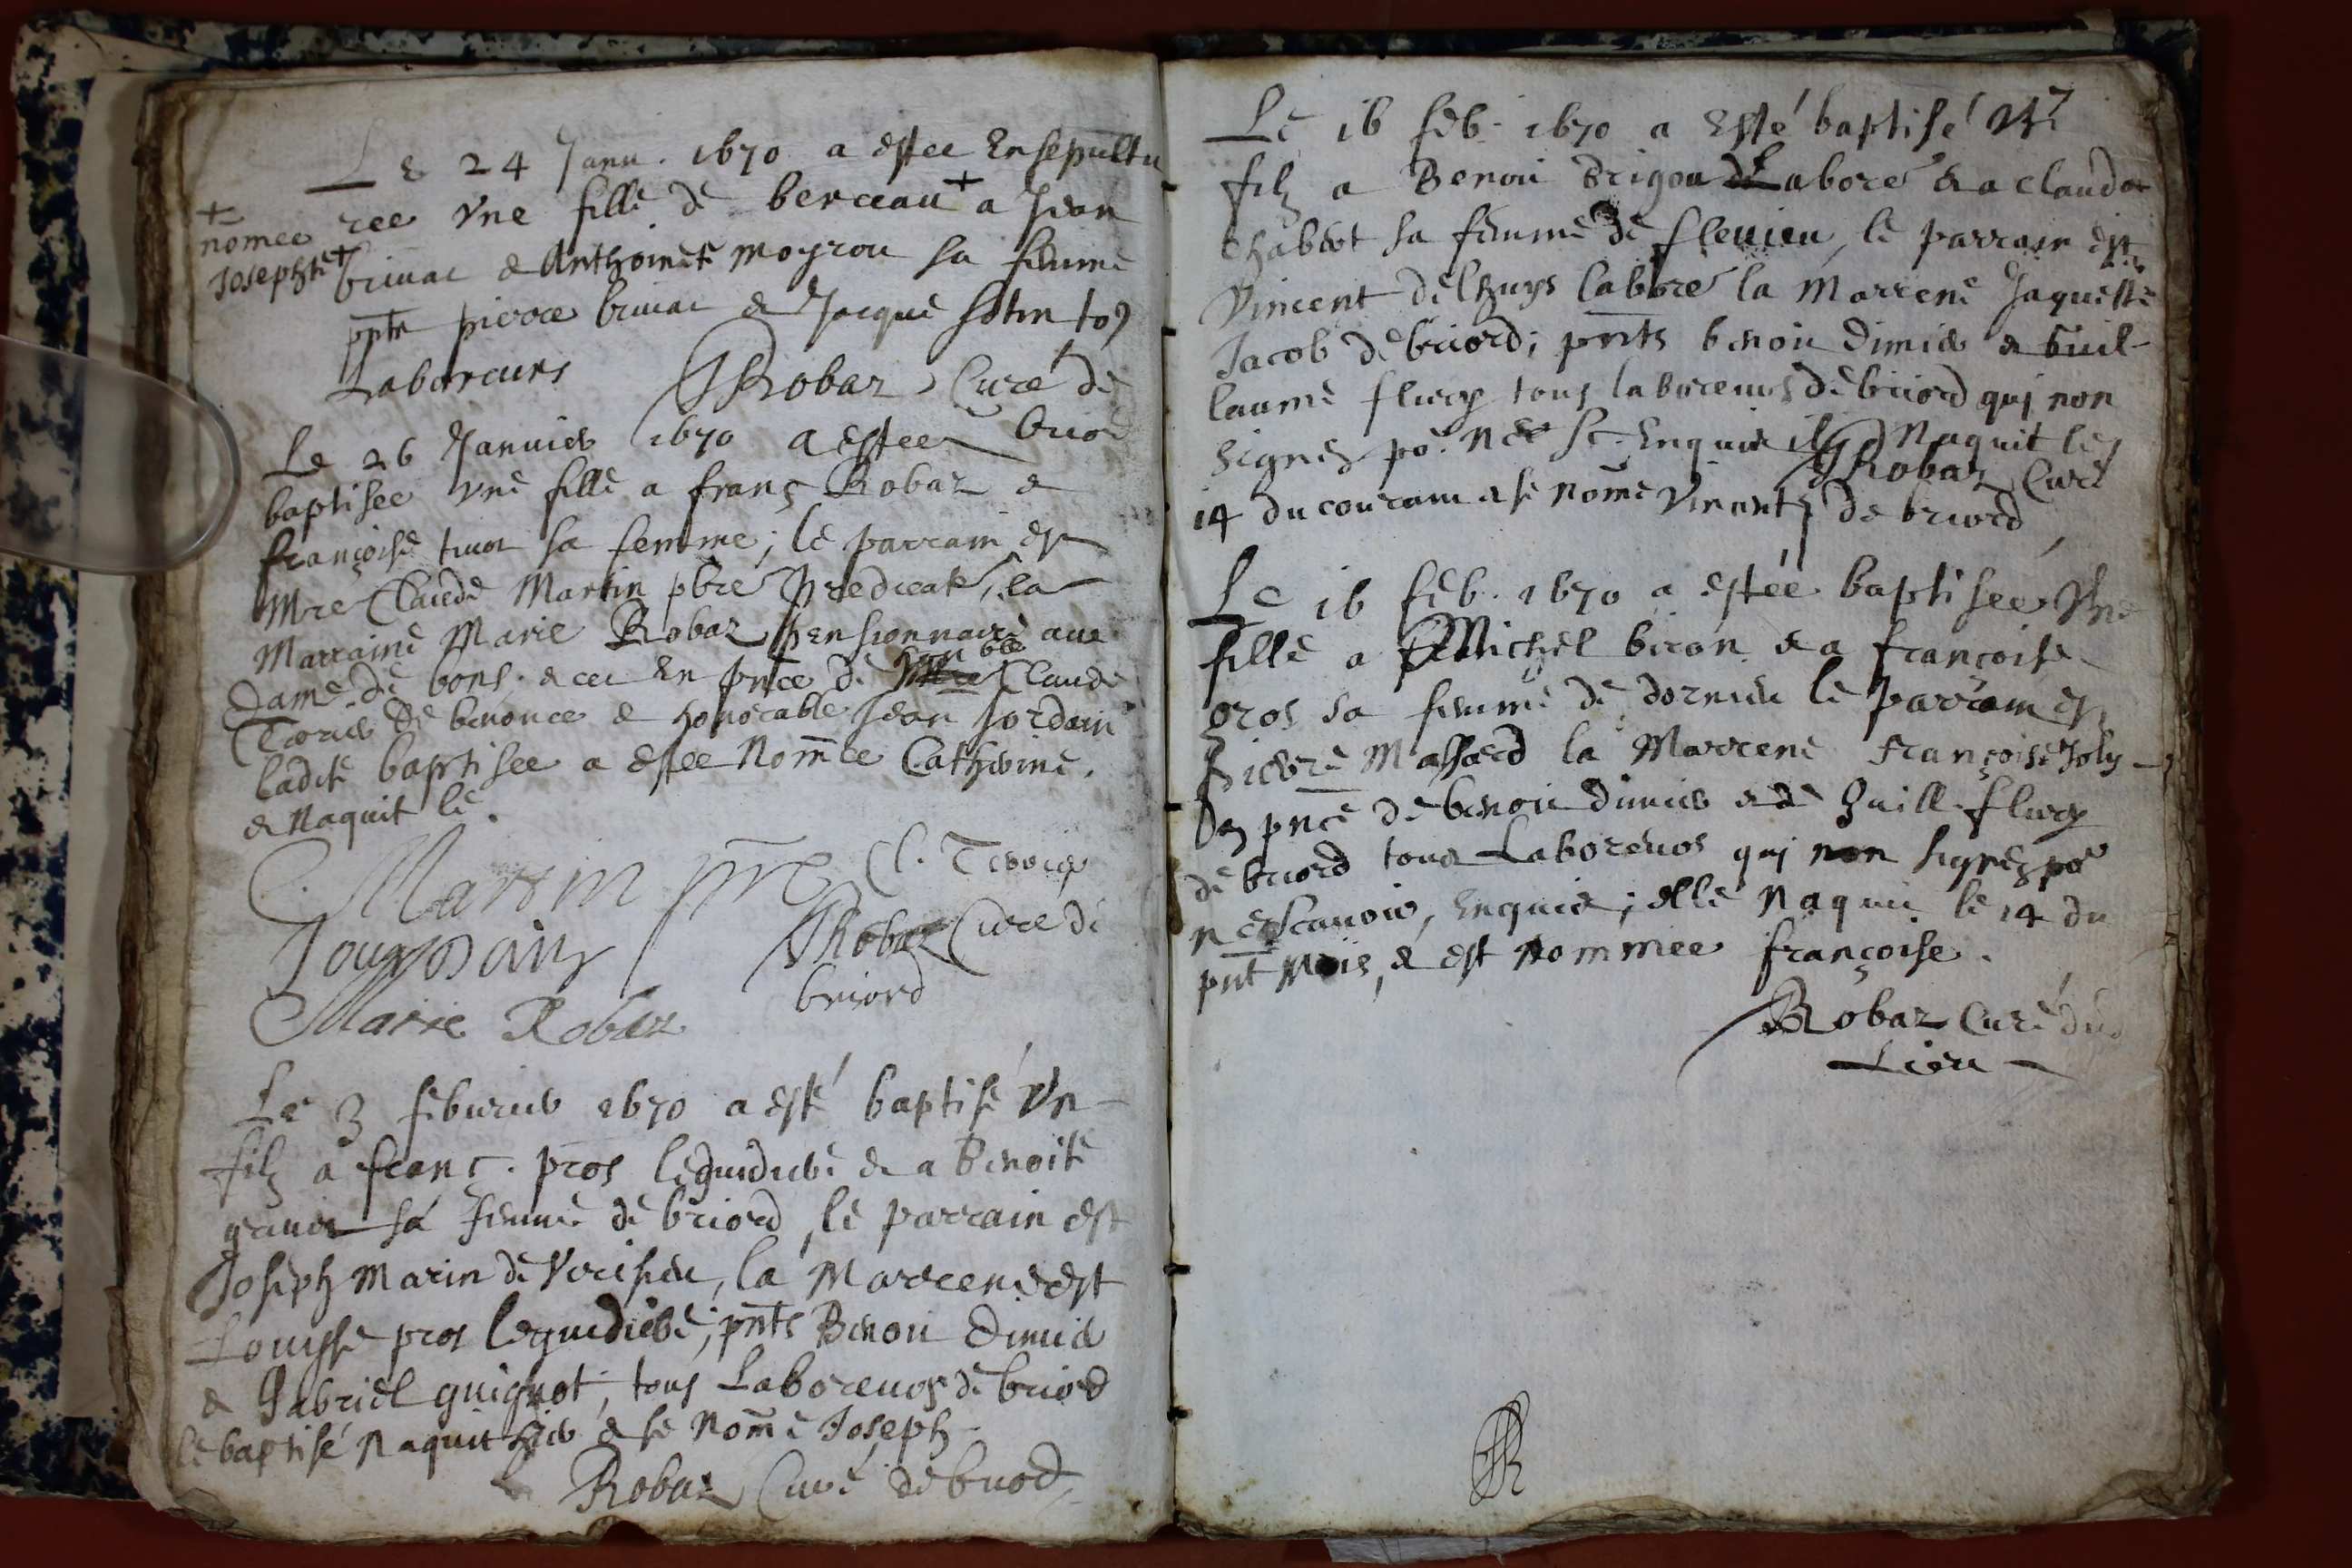 Le 24 Janu. 1670 a estee Ensepultu
ree Vne fille de berceau + a Jean
+ nomee Josephte +
briuat & Anthoinete moyrou sa femme
pnts pierre briuat & Jacque
Laboreurs JRobaz Curé de
briord
Le 26 Januier 1670 a estee
baptisee Vne fille a franç Robaz &
françoise sa femme; le parrain est
Mre Claude Martin pbre predicatr, la
Marraine Marie Robaz pensionnaire aux
Dame de bons. & ce en pnce de honble Claude
de benonce & honorable Jean Jordain
ladite baptisee a estee Nommee Catherine.
& Naquit le.
C. Martin pbre Cl.
Jourdain JRobaz Curé de
briord
Marie Robaz
Le 3 feburier 1670 a esté baptisé Vn
filz a franç. pros leguidiere & a Benoite
sa femme de briord, le parrain est
Joseph Marin de Verisieu, la Marrene est
Louisse pros leguidiere; pnts Benoi Dimier
& Gabriel guignot, tous Laboreurs de briord
le baptisé Naquit hier & se Nomme Joseph.
Robaz Curé de briord
Le 16 feb. 1670 a Esté baptisé Vn
filz a Benoi Brigou Labore & a clauda
Chabert sa femme de fleuieu, le parrain est
Vincent delhuys labore la Marrene Jaqueste
Jacob de briord; pnts benoi Dimier & Guil-
laume flury tous laboreurs de briord qui non
signez po. Ne sc. Enquis il Naquit le
14 du courant & se nomme Vincent JRobaz Curé
de briord
Le 16 feb. 1670 a estée baptisee Vne
fille a Michel biron & a françoise
gros sa femme de dornieu le parrain est
pierre Massard la Marrene françoise Joly
En pnce de benoi dimier & de Guill. flury
de briord tous Laboreurs qui non signez po
ne scauoir, Enquis; elle Naquit le 14 du
pnt Mois, & est Nommee françoise.
Robaz Curé du
Lieu